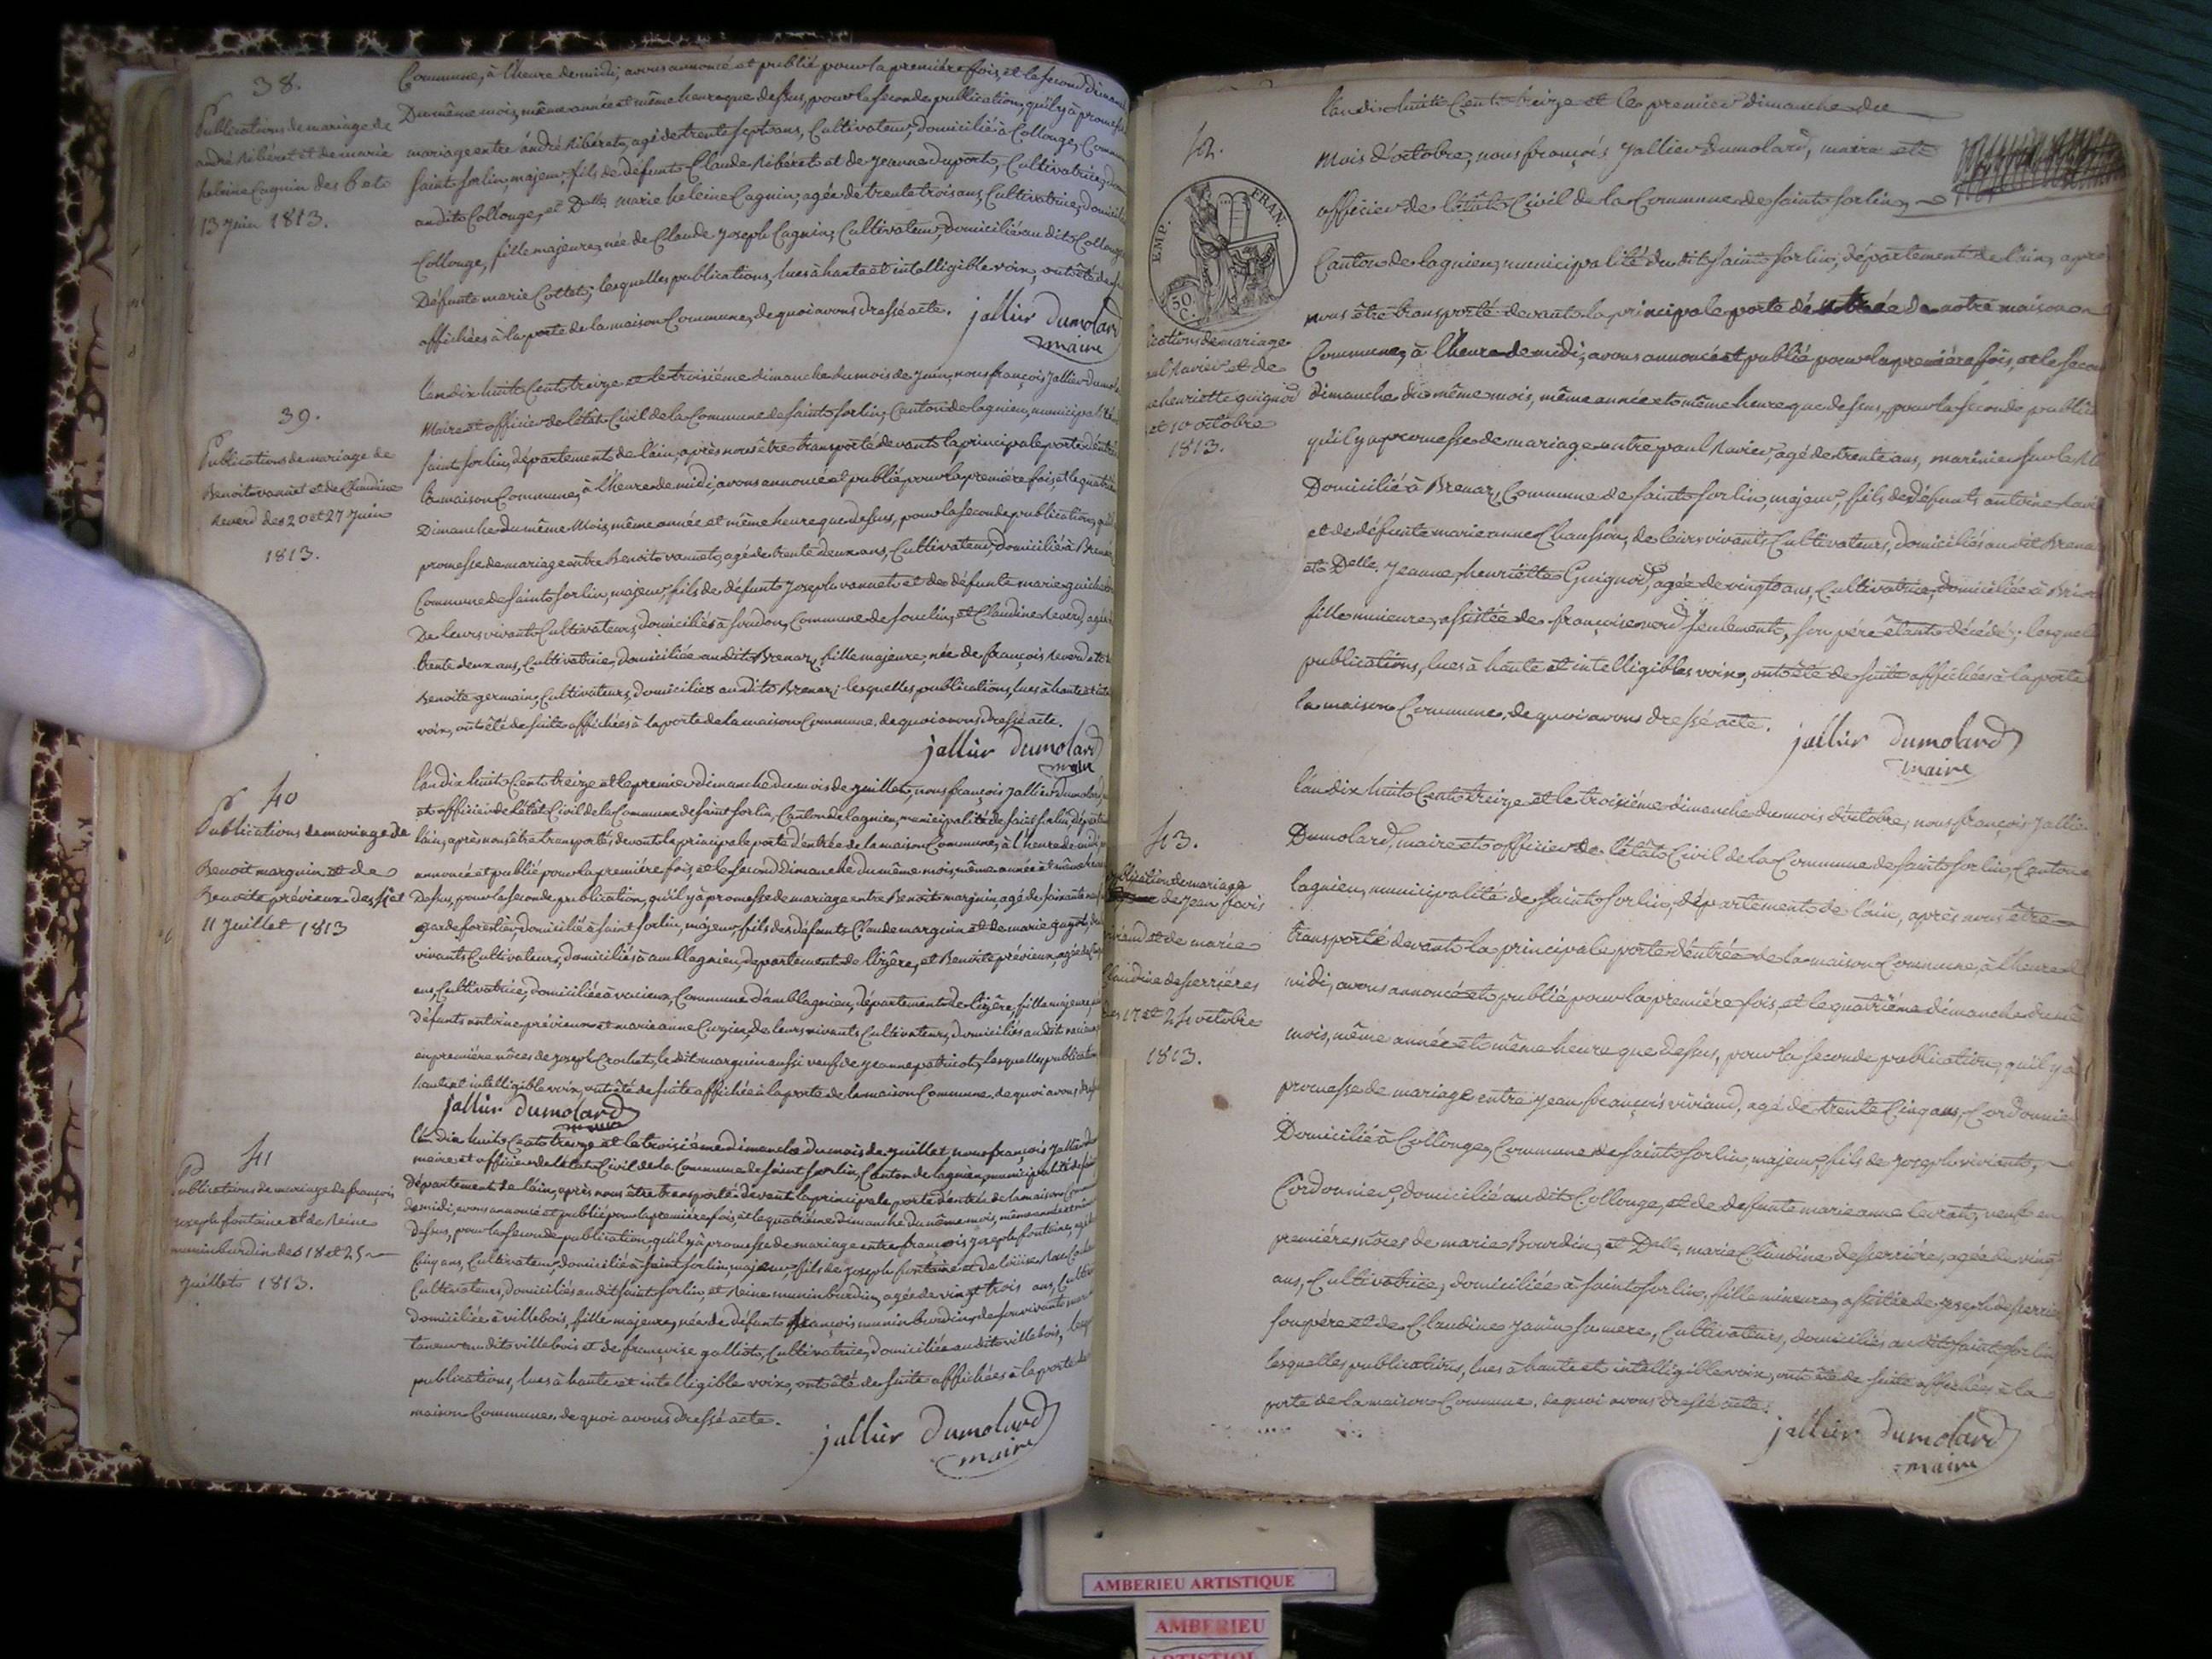 38.
Publications de mariage de
andré Ribéret et de marie
heleine Cagnin des 6 et
13 juin 1813.
Commune, à l'heure de midi, avons annoncé et publié pour la première fois, et le second dimanche
Du même mois, même année et même heure que dessus, pour la seconde publication, qu'il y à promesse
mariage entre andré Ribéret, agé de trente sept ans, Cultivateur, domicilié à Collonge, Commune
saint sorlin, majeur, fils de défunt Claude Ribéret et de jeanne duport, Cultivatrice, dom
audit Collonge, et Delle marie heleine Cagnin, agée de trente trois ans, Cultivatrice, domicili
Collonge, fille majeure, née de Claude joseph Cagnin, Cultivateur, domicilié au dit Collonge
Défunte marie Cottet; lesquelles publications, lues à haute et intelligible voix, ont été de
affichées à la porte de la maison Commune, de quoi avons dressé acte.
jallier dumolard
maire
39.
Publications de mariage de
Benoit vannet et de Claudine
Reverd des 20 et 27 juin
1813.
l'an dix huit Cent treize et le troisième dimanche du mois de juin, nous françois jallier dumol
Maire et officier de l'êtât Civil de la Commune de saint sorlin, Canton de lagnieu, municipalité
saint sorlin, département de l'ain, après nous être transporté devant la principale porte d'entré
la maison Commune, à l'heure de midi, avons annoncé et publié pour la première fois, et le quatriè
Dimanche du même Mois, même année et même heure que dessus, pour la seconde publication, qu'il
promesse de mariage entre Benoit vannet, agé de trente deux ans, Cultivateur, domicilié à Brenaz
Commune de saint sorlin, majeur, fils de défunt joseph vannet et de défunte marie
De leurs vivants Cultivateurs, domiciliés à soudon, Commune de souclin, et Claudine Reverd, agée
trente deux ans, Cultivatrice, domiciliée audit Brenaz, fille majeure, née de françois Reverd et
Benoite germain, Cultivateurs, domiciliés au dit Brenaz; lesquelles publications, lues à haute et inte
voix, ont été de suite affichées à la porte de la maison Commune, de quoi avons dressé acte.
jallier dumolard
maire
40
Publications de mariage de
Benoit marguin et de
Benoite prévieux des 4 et
11 juillet 1813
l'an dix huit Cent treize et le premier dimanche du mois de juillet, nous françois jallier dumolard,
et officier de l'êtât Civil de la Commune de saint sorlin, Canton de lagnieu, municipalité de saint sorlin, départ
l'ain, après nous être transportés devant la principale porte d'entrée de la maison Commune, à l'heure de midi,
annoncé et publié pour la première fois, et le second Dimanche du même mois, même année et même heure
Dessus, pour la seconde publication, qu'il y à promesse de mariage entre Benoit marguin, agé de soixante
garde forestier, domicilié à saint sorlin, majeur, fils des défunts Claude marguin et de marie guyot, de
vivants Cultivateurs, domiciliés à amblagnieu, département de l'izère, et Benoite prévieux, agée de
ans, Cultivatrice, domiciliée à vacieux, Commune d'amblagnieu, département de l'izère, fille majeure,
défunts antoine prévieux et marie anne Cuzin, de leurs vivants Cultivateurs, domiciliés au dit
en première nôces de joseph Crochat, le dit marguin aussi veuf de jeanne patricot, lesquelles publication
haute et intelligible voix, ont été de suite affichée à la porte de la maison Commune, de quoi avons
jallier dumolard
maire
41
Publications de mariage de françois
joseph fontaine et de Reine
munin burdin des 18 et 25
juillet 1813.
l'an dix huit Cent treize et le troisième dimanche du mois de juillet, nous françois jallier du
maire et officier de l'êtât Civil de la Commune de saint sorlin, Canton de lagnieu, municipalité de sain
Département de l'ain, après nous être transporté devant la principale porte d'entrée de la maison Comm
de midi, avons annoncé et publié pour la première fois, et le quatrième dimanche du même mois, même année et même
dessus, pour la seconde publication, qu'il y à promesse de mariage entre françois joseph fontaine, agé de
Cinq ans, Cultivateur, domicilié à saint sorlin, majeur, fils de joseph fontaine et de loüise
Cultivateurs, domiciliés au dit saint sorlin, et Reine munin burdin, agée de vingt trois ans, Cultiv
domiciliée à villebois, fille majeure, née de défunt françois munin burdin, de son vivant
taneur au dit villebois et de françoise galliot, Cultivatrice, domiciliée au dit villebois, lesq
publications, lues à haute et intelligible voix, ont été de suite affichées à la porte de
maison Commune, de quoi avons dressé acte.
jallier dumolard
maire
42.
EMP. FRAN.
50 C.
ications de mariage
ul Ravier et de
ne henriette guignod
et 10 octobre
1813.
l'an dix huit Cent treize et le premier dimanche du
Mois d'octobre, nous françois jallier Dumolard, maire et
officier de l'êtât Civil de la Commune de saint sorlin,
Canton de lagnieu, municipalité du dit saint sorlin, département de l'ain, apré
nous être transporté devant la principale porte d'entrée de notre maison
Commune, à l'heure de midi, avons annoncé et publié pour la première fois, et le secon
dimanche du même mois, même année et même heure que dessus, pour la seconde public
qu'il y a promesse de mariage entre paul Ravier, agé de trente ans, marinier sur le R
Domicilié à Brenaz, Commune de saint sorlin, majeur, fils de défunt antoine Ravi
et de défunte marie anne Chanson, de leurs vivants Cultivateurs, domiciliés au dit Brena
et Delle. jeanne henriëtte Guignod, agée de vingt ans, Cultivatrice, domiciliée à
fille mineure, assistée de françoise seulement, son père êtant décédé; lesquel
publications, lues à haute et intelligibles voix, ont été de suite affichées à la porte
la maison Commune, de quoi avons dressé acte.
jallier dumolard
maire
43.
blication de mariage
de jean fçois
viviand et de marie
Claudine desserrières
des 17 et 24 octobre
1813.
l'an dix huit Cent treize et le troisième dimanche du mois d'octobre, nous françois jallier
Dumolard, maire et officier de l'êtât Civil de la Commune de saint sorlin, Canton
lagnieu, municipalité de saint sorlin, département de l'ain, après nous être
transporté devant la principale porte d'entrée de la maison Commune, à l'heure d
midi, avons annoncé et publié pour la première fois, et le quatrième dimanche du mê
mois, même année et même heure que dessus, pour la seconde publication, qu'il y à
promesse de mariage entre jean françois viviand, agé de trente Cinq ans, Cordonnier
Domicilié à Collonge, Commune de saint sorlin, majeur, fils de joseph viviant,
Cordonnier, domicilié au dit Collonge, et de defunte marie anne levrat, veuf en
premières nôces de marie Bourdin, et Delle. marie Claudine desserrière, agée de vingt
ans, Cultivatrice, domiciliée à saint sorlin, fille mineure, assistée de joseph desserriè
son père et de Claudine janin sa mere, Cultivateurs, domiciliés au dit saint sorlin
lesquelles publications, lues à haute et intelligible voix, ont été de suite affichées à la
porte de la maison Commune, de quoi avons dressé acte.
jallier dumolard
maire
AMBERIEU ARTISTIQUE
AMBERIEU
ARTISTIQUE